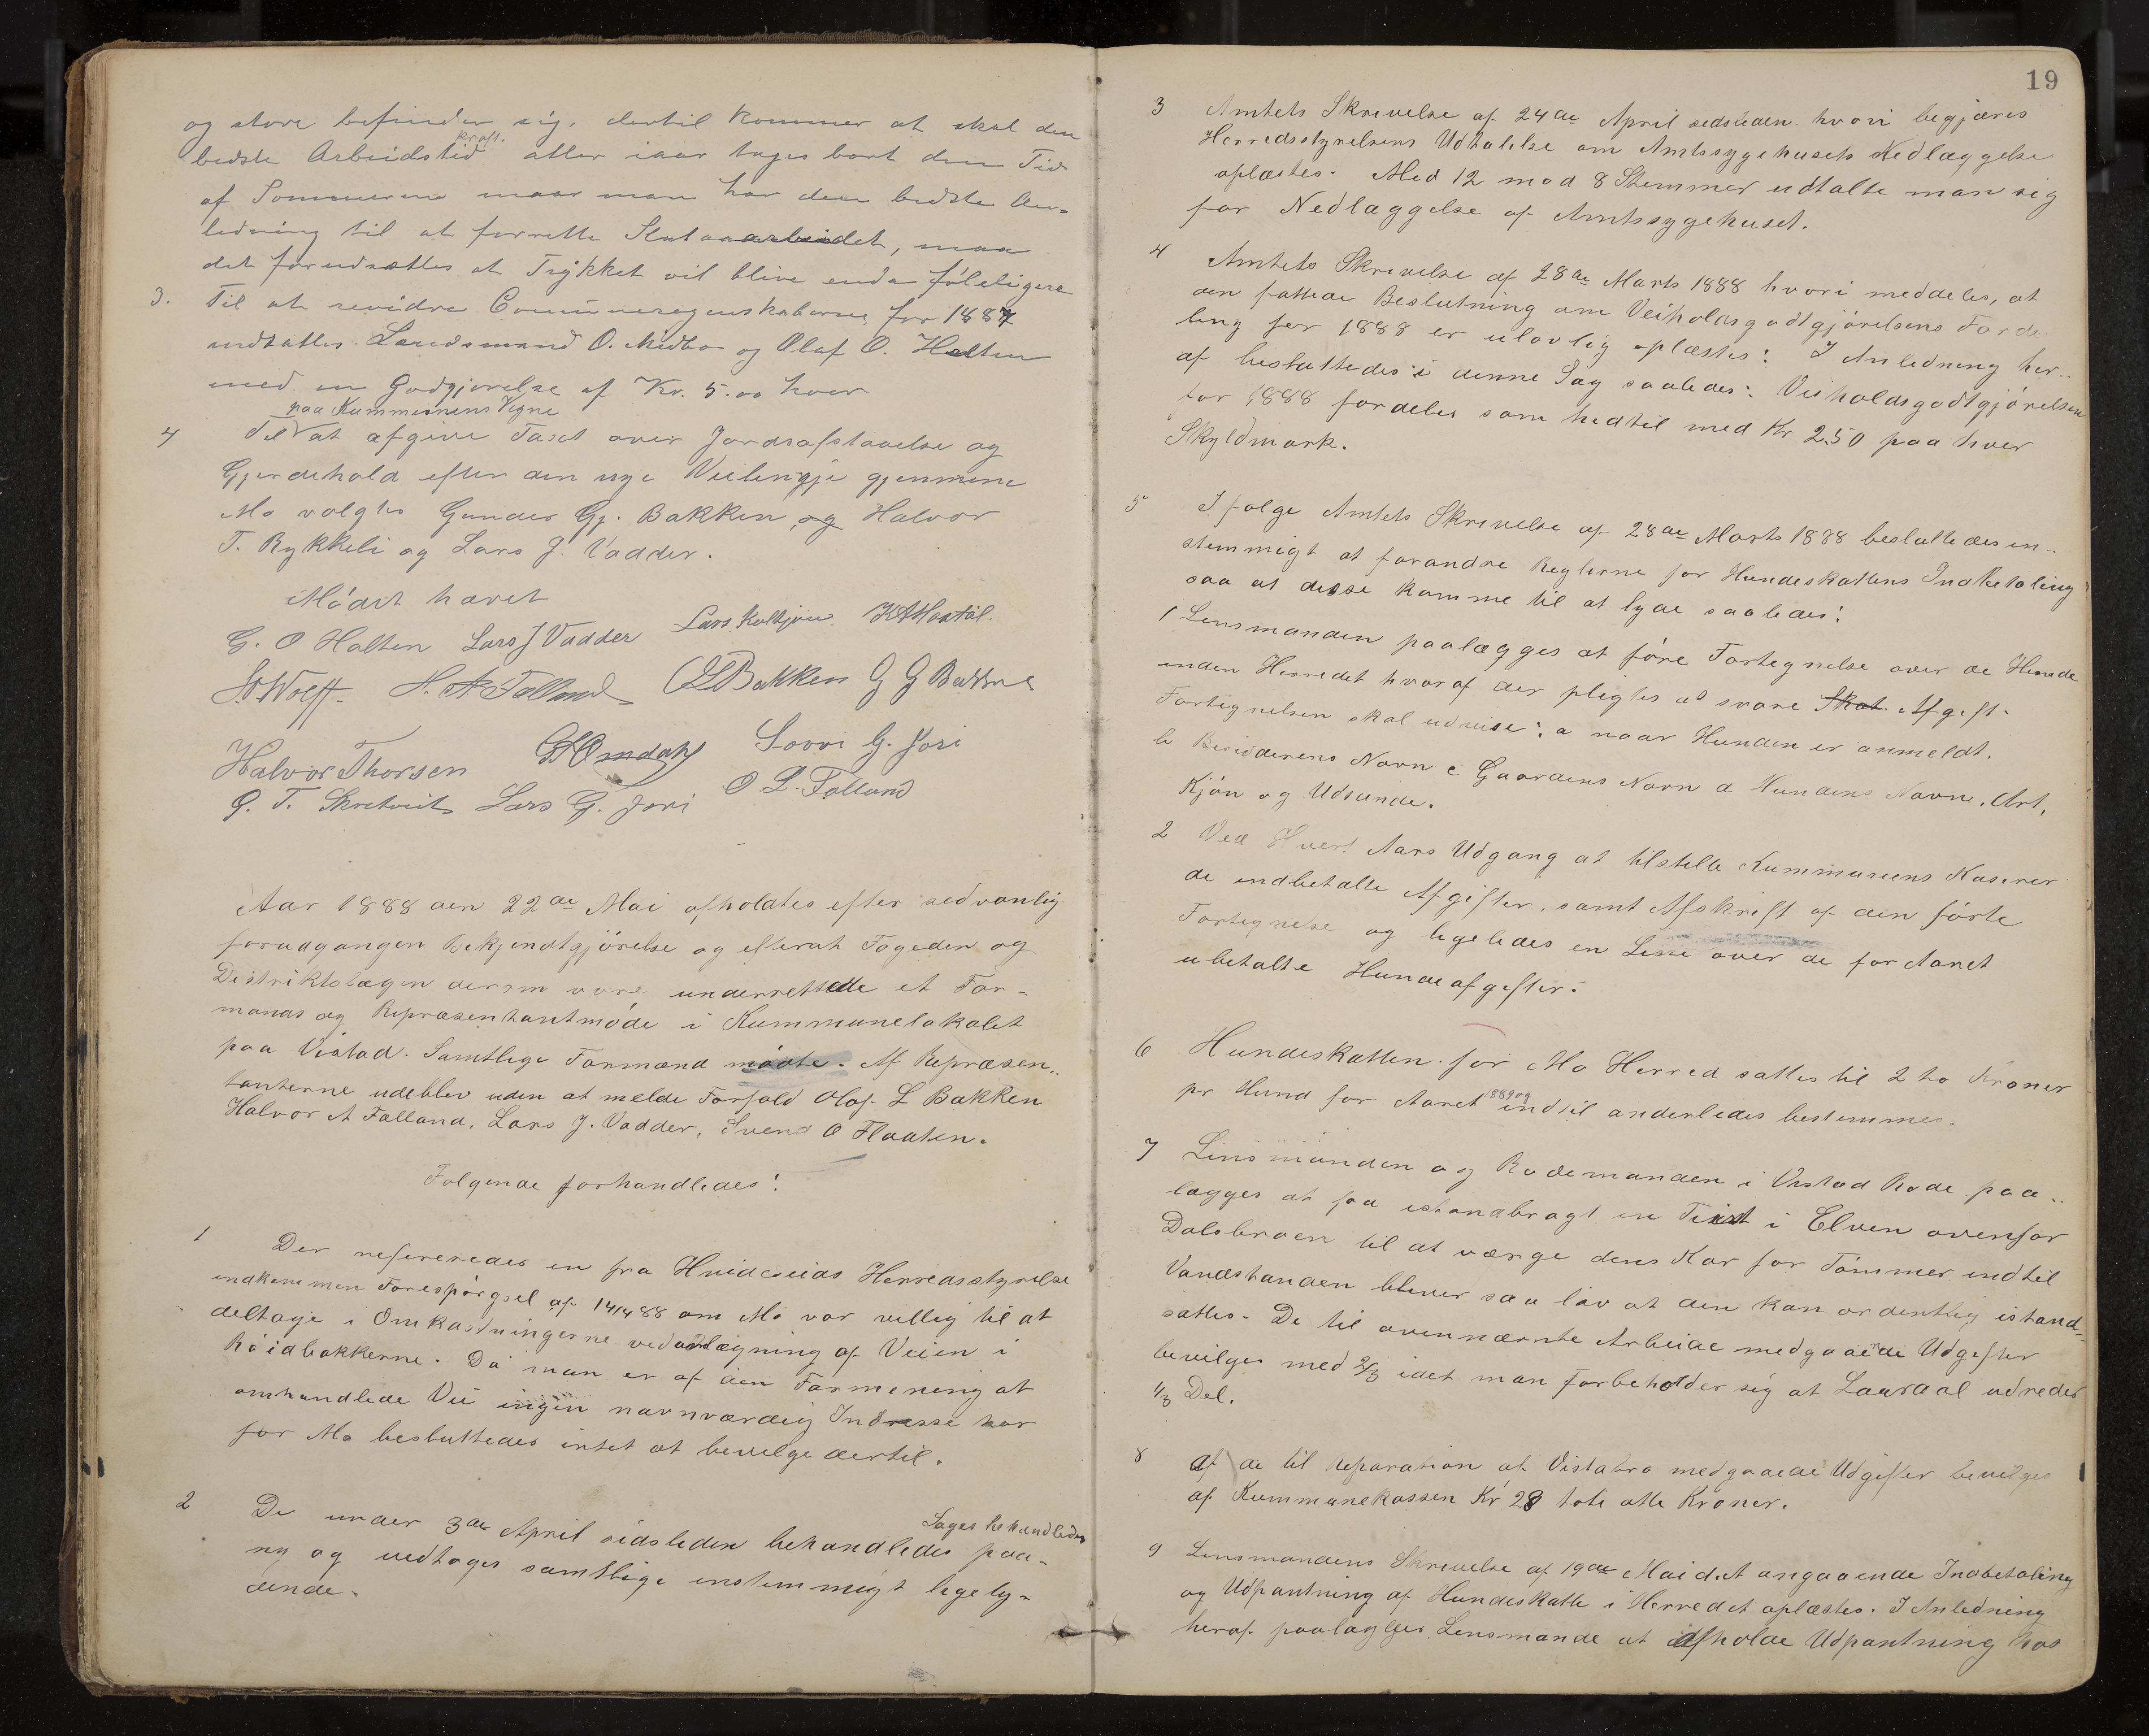 og store befinder sig, dertil kommer at skal den
kraft.
bedste Arbeidstid atter iaar tages bort den Tid
af Sommeren naar man har den bedste An-
ledning til at forrette Slataaarbeidet, maa
det forudsættes at Trykket vil blive enda føleligere
3. Til at revidere Communeregnskaberne for 1887
udtattes Lændsmand O. Midbø og Olaf O. Holten
med en Godgjørelse af Kr. 5.00 hver
paa Kummunens Vegne
4 Til at afgive Taxt over Jordsafstaaelse og
Gjerdehold efter den nye Veilengje gjenmem
Mo valgtes Gunder Gj. Bakken, og Halvor
T. Rykkeli og Lars J. Vadder.
Mødet hævet
G. O Holten Lars J Vadder Lars Kultjøn K A Hastøl.
H Wolff. H. A Falland O L Bakken G G Bakken
Halvor Thorsen G H Omdahl Sovri G. Jori
G. T. Skretveit Lars G. Jori O L. Falland
Aar 1888 den 22de Mai afholdtes efter sedvanlig
forudgangen Bekjendtgjørelse og efterat Fogeden og
Distriktslægen derom vare underrettede et For-
mands og Repræsentantmøde i Kummunelokalet
paa Vistad. Samtlige Formænd mødte. Af Repræsen-
tanterne udeblev uden at melde Forfald Olaf L Bakken
Halvor A Falland, Lars J. Vadder, Svend O Flaaten.
Følgende forhandledes:
1 Der refereredes en fra Hvideseids Herredsstyrelse
indkommen Forespørgsel af 14/4 88 om Mo var villig til at
deltage i Omkastningerne ved anlægning af Veien i
høidbakkerne. Da man er af den Formening at
omhandlede Vei ingen navnværdig Intresse har
for Mo besluttedes intet at bevilge dertil.
2 De under 3de April sidsleden behandledes paa-
Sager behandledes
ny og vedtoges samtlige enstemmigt legely-
dende.
19
3 Amtets Skrivelse af 24de April sidsleden hvori begjæres
Herredsstyrelsens Udtalelse om Amtssygehusets Nedlæggelse
oplæstes. Med 12 mod 8 Stemmer udtalte man sig
for Nedlæggelse af Amtssygehuset.
4 Amtets Skrivelse af 28de Marts 1888 hvori meddeles, at
den fattede Beslutning om Veiholdsgodtgjørelsens Forde
ling for 1888 er ulovlig oplæstes: I Anledning her-
af besluttedes i denne Sag saaledes: Veiholdsgodtgjørelsen
for 1888 fordeles som hedtil med Kr 2.50 paa hver
Skyldmark.
5 Ifølge Amtets Skrivelse af 28de Marts 1888 besluttedes en-
stemmigt at forandre Reglerne for Hundeskattens Indbetaling
saa at disse komme til at lyde saaledes:
1 Lensmanden paalægges at føre Fortegnelse over de Hunde
inden Herredet hvoraf der pligtes at svare Skat Afgift.
Fortegnelsen skal udvise: a naar Hunden er anmeldt.
b Besidderens Navn c Gaardens Navn d Hundens Navn, Art,
Kjøn og Udseende.
2 Ved Hvert Aars Udgang at tilstelle Kummunens Kaserer
de indbetalte Afgifter, samt Afskrift af den førte
Fortegnelse og legeledes en Liste over de for Aaret
ubetalte Hundeafgifter.
6 Hundeskatten for Mo Herred sattes til 2 to Kroner
1889 og
pr Hund for Aaret indtil anderledes bestemmes.
7 Lensmanden og Rodemanden i Vistad Rode paa-
lægges at faa istandbragt en Teist i Elven ovenfor
Dalsbroen til at værge dens Kar for Tømmer indtil
Vandstanden bliver saa lav at den kan ordentlig istand-
sattes. De til ovennævnte Arbeide medgaaede Udgifter
bevilges med 2/3 idet man forbeholder sig at Laurdal udreder
1/3 Del.
8 Af de til Reparation at Vistabro medgaaede Udgifter bevilges
af Kummunekassen Kr 28 toti otte Kroner.
9 Lensmandens Skrivelse af 19de Mai d.A angaaende Indbetaling
og Udpantning af Hundeskatte i Herredet oplæstes. I Anledning
heraf paalægges Lensmande at afholde Udpantning hos